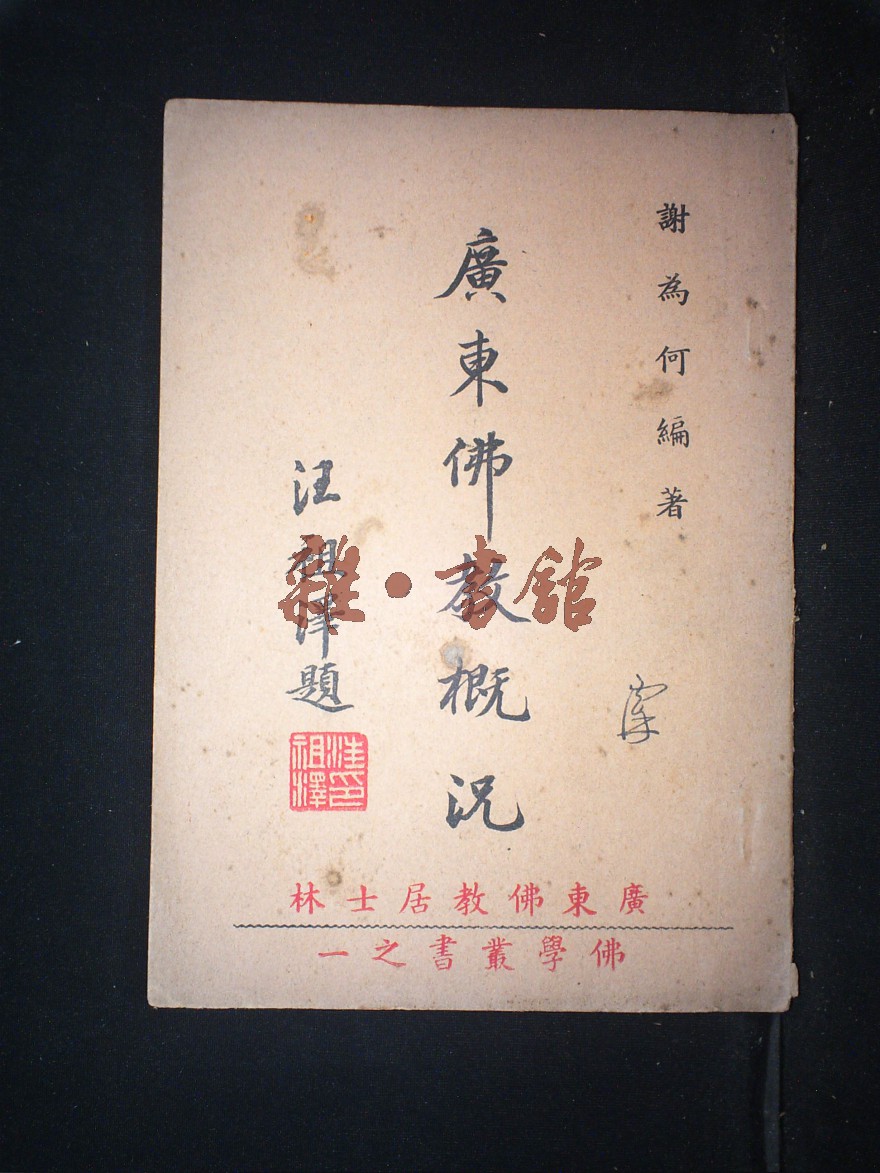 謝為何編著
廣東佛教概況
汪祖澤題
汪印祖澤
廣東佛教居士林
佛學叢書之一
雜·書館